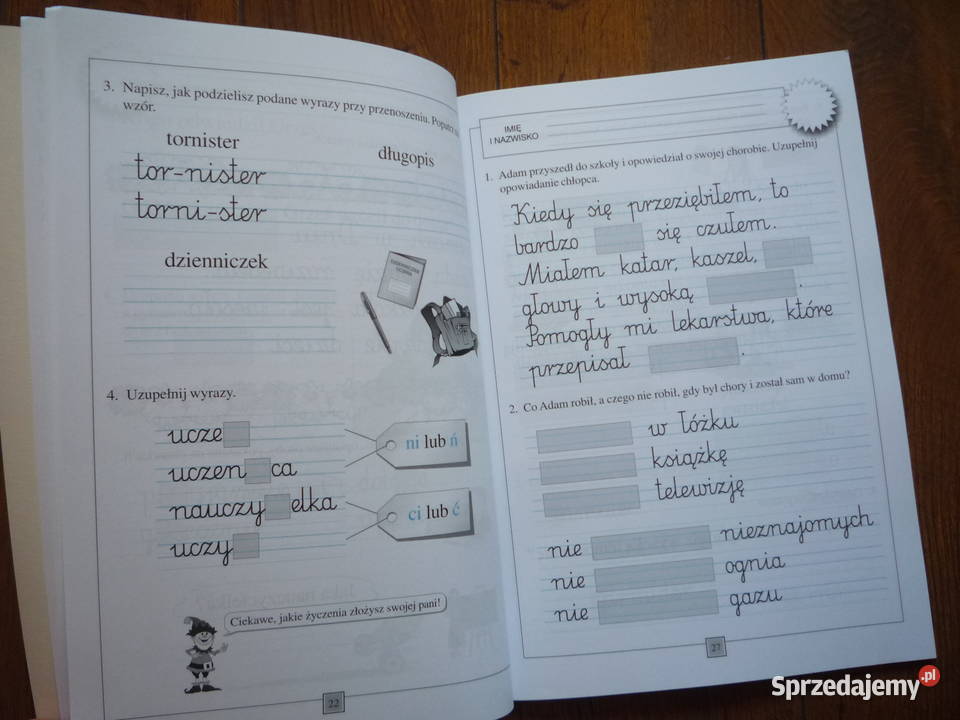 3. Napisz, jak podzielisz podane wyrazy przy przenoszeniu.
wzór.
tornister
długopis
tor-nister
torni-ster
dzienniczek
4. Uzupełnij wyrazy.
ucze
uczen ca
nauczy elka
uczy
ni lub ń
ci lub ć
Ciekawe, jakie życzenia złożysz swojej pani!
22
IMIĘ
I NAZWISKO
1. Adam przyszedł do szkoły i opowiedział o swojej chorobie. Uzupełnij
opowiadanie chłopca.
Kiedy się przeziębiłem, to
bardzo się czułem.
Miałem katar, kaszel,
głowy i wysoką .
Pomogły mi lekarstwa, które
przepisał .
2. Co Adam robił, a czego nie robił, gdy był chory i został sam w domu?
w łóżku
książkę
telewizję
nie nieznajomych
nie ognia
nie gazu
27
Sprzedajemy.pl